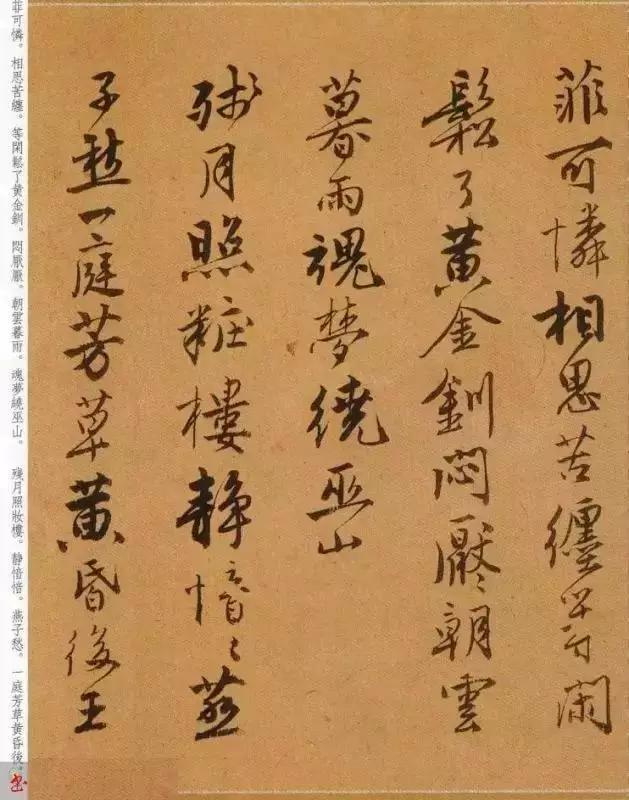 菲可憐相思苦纏等閑
鬆了黄金釧悶厭〻朝雲
暮雨魂夢繞巫山
残月照粧樓静愔〻燕
子愁一庭芳草黄昏後王
菲可憐。相思苦纏。等閑鬆了黄金釧。悶厭厭。朝雲暮雨。魂夢繞巫山。　殘月照妝樓。静愔愔。燕子愁。一庭芳草黄昏後。